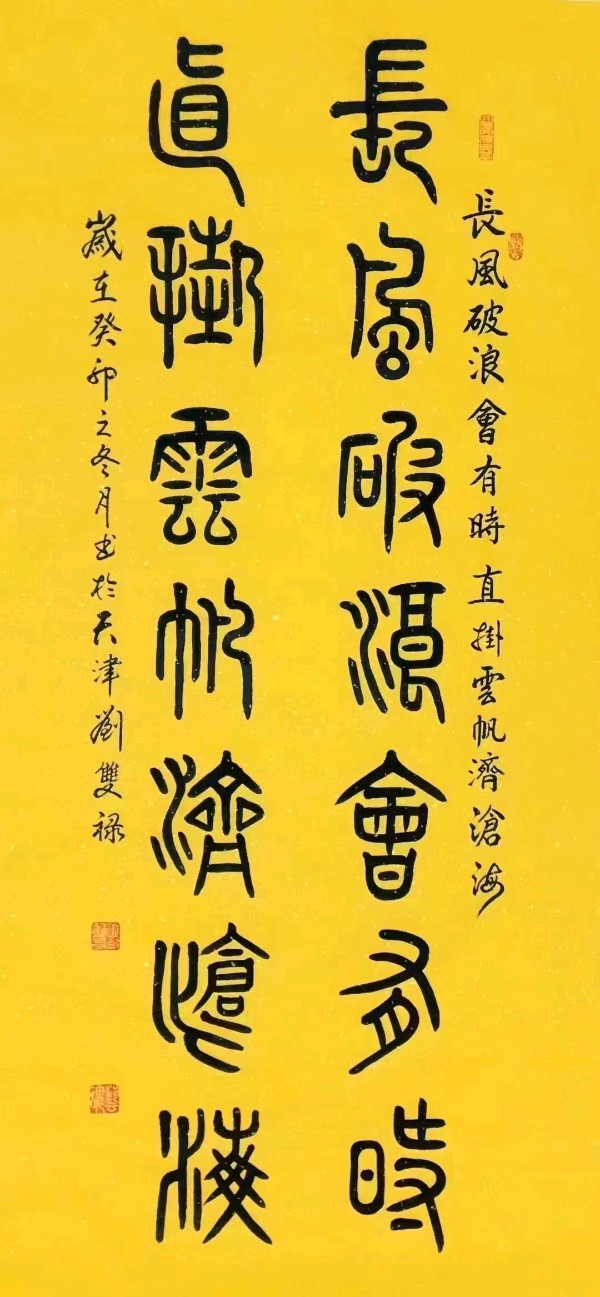 長風破浪會有時直掛雲帆濟滄海
長風破浪會有時
直掛雲帆濟滄海
歲在癸卯之冬月書於天津劉雙祿